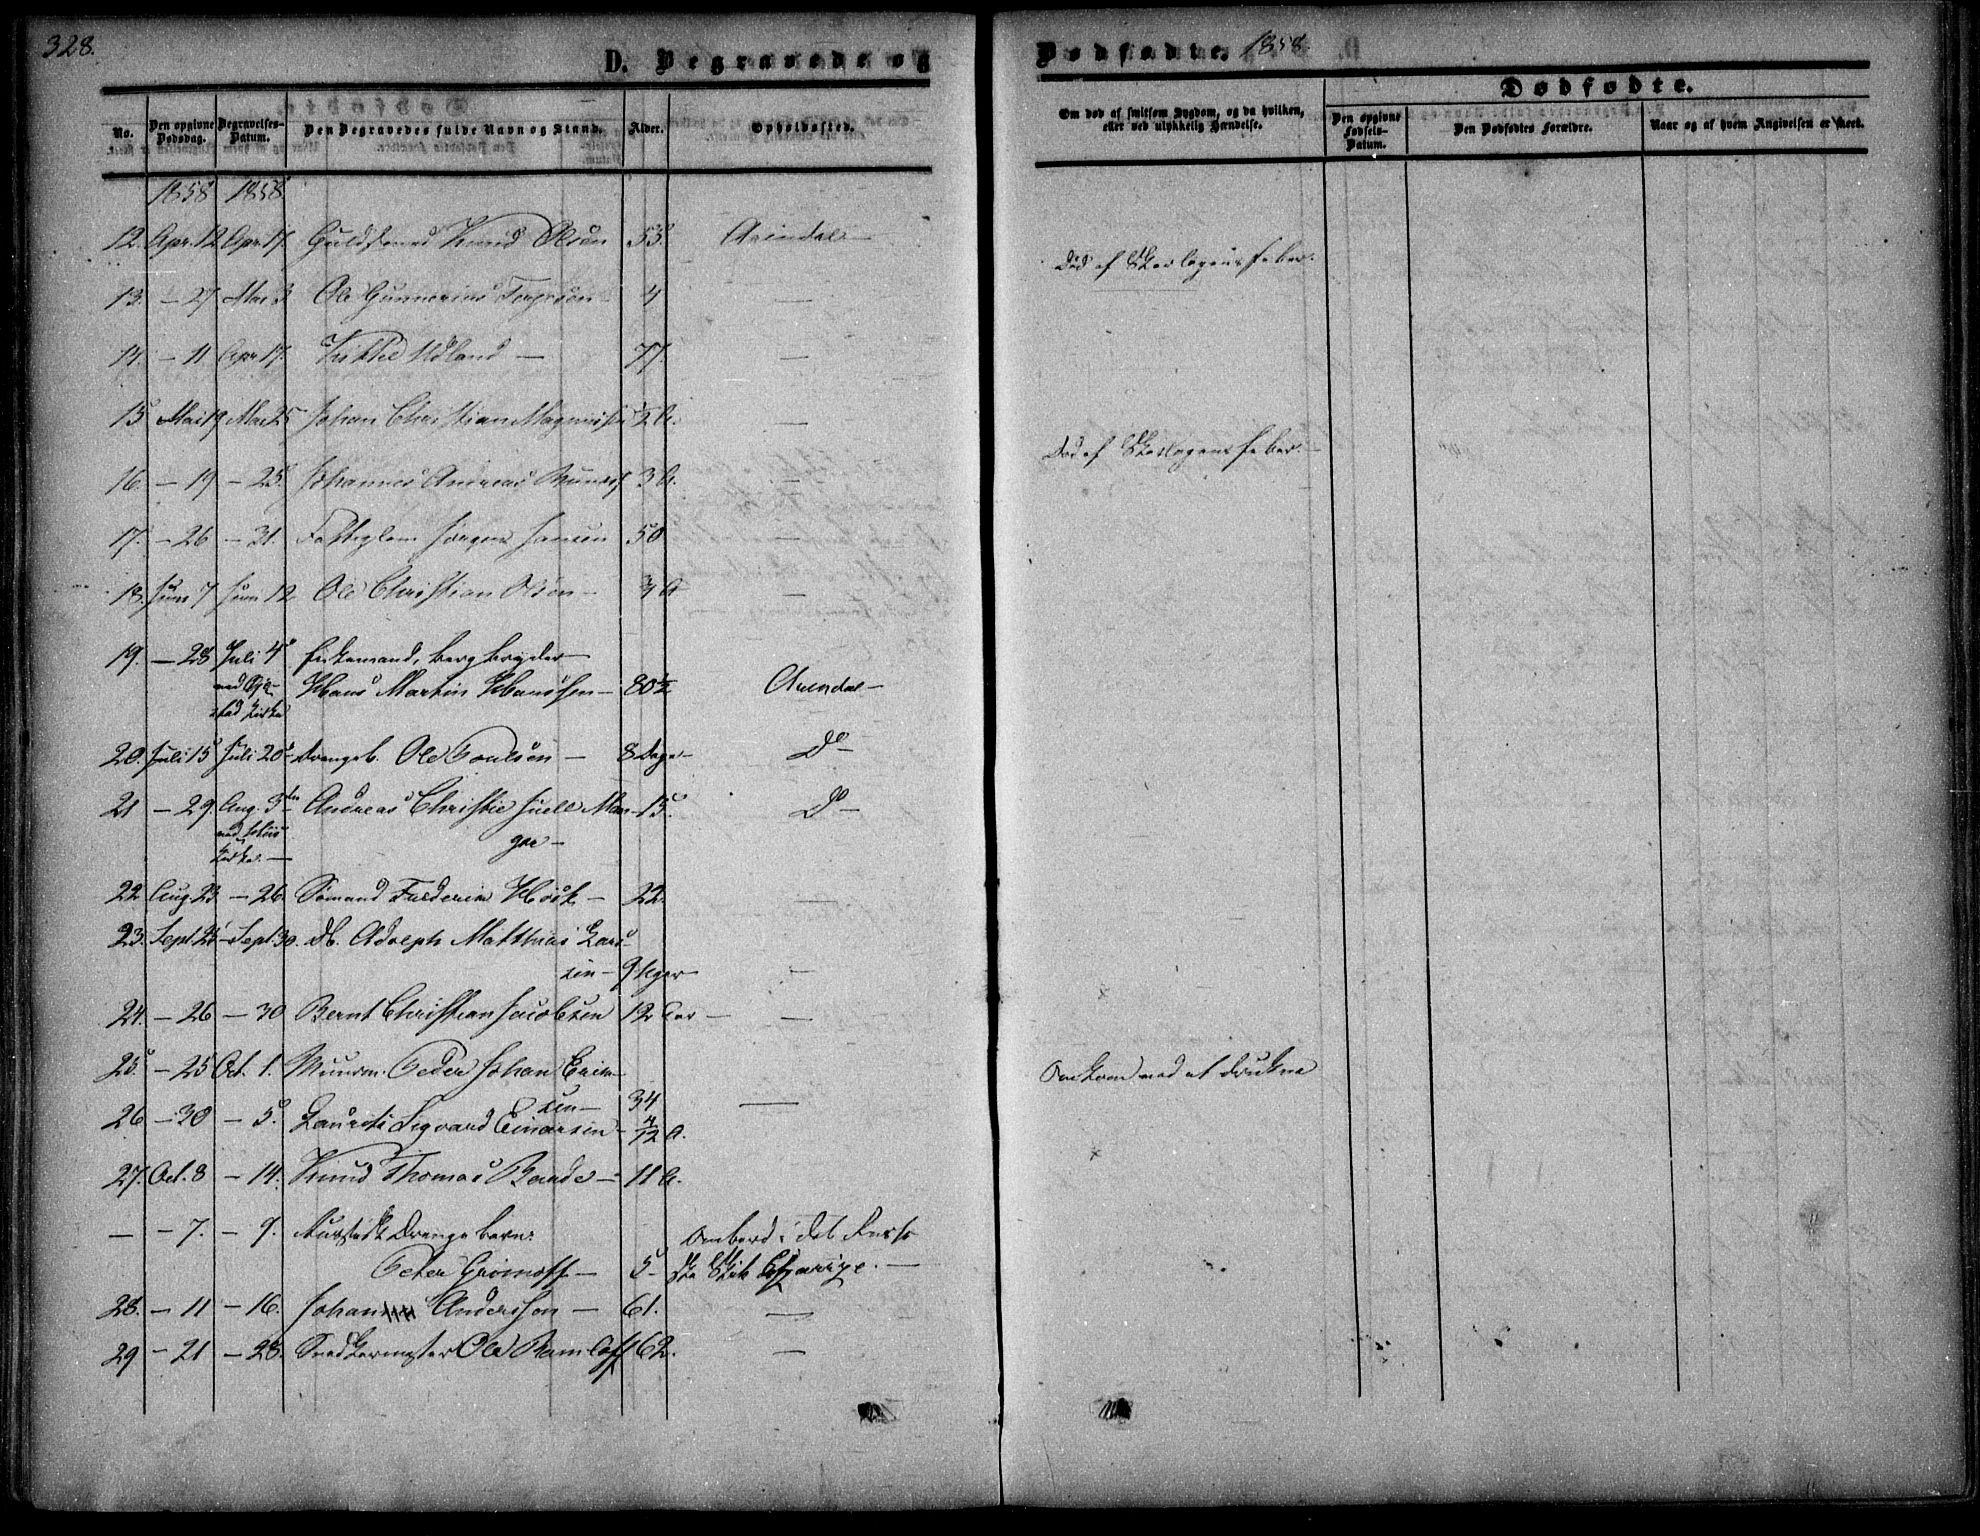 328.
D. Begravede og
Dødfødte. 1858.
No.
Den opgivne Dødsdag.
Begravelses-Datum.
Den Begravedes fulde Navn og Stand.
Alder.
Opholdssted.
Om død af smitsom Sygdom, og da hvilken, eller ved ulykkelig Hændelse.
Dødfødte.
Den opgivne Fødsels-Datum.
Den Dødfødtes Forældre.
Naar og af hvem Angivelsen er skeet.
1858 1858
12. Apr. 12 Apr. 17. Guldsmed Knud Olsen 53. Arendal —
13. — 27 Mai 3 Ole Gunnerius Terjesen 4 — Død af Skarlagensfeber.
14. — 11 Apr 17. Udland — 77. —
15 Mai 19 Mai 25 Johan Christian Magnussen 1/2 A. —
16. — 19 — 25. Johannes Andreas 3 A. — Død af Skarlagensfeber. —
17. — 26 — 31. Fattiglem Jørgen Jansen 50 —
18. Juni 7 Juni 12 Ole Christian Olsen — —
19. — 28 Juli 4
Hans Martin Hanssen — 80 1/2 Arendal —
20. Juli 15 Juli 20 Drengeb. Ole Poulsen — 8 Dage — Do —
21 — 29. Aug. 3die Andreas Christie Juell Man- 15. Do —
ger —
22. Aug 23 — 26. Sømand Frederik Høst — 22. —
23. Sept 25 — Sept 30. Db. Adolph Matthias Lars-
sen — 9 Uger —
24. — 26 — 30 Bernt Christian Jacobsen 12 Aar — —
25. — 25 Oct. 1. Muurm. Peder Johan Erik-
sen — 34 — Omkom ved at drukne
26 — 30 — 5. Laurits Sigvard Einarsen — 4/12 A.
27. Oct. 8 — 14. Knud Thomas Baade — 11 A.
— — 7. — 9. Drengebarn:
Peter — 5 — Ombord i det Russi
ske Skib
28. — 11 — 16. Johan Anderssen — 61. —
29 — 21 — 28. Snedkermester Ole 62. —